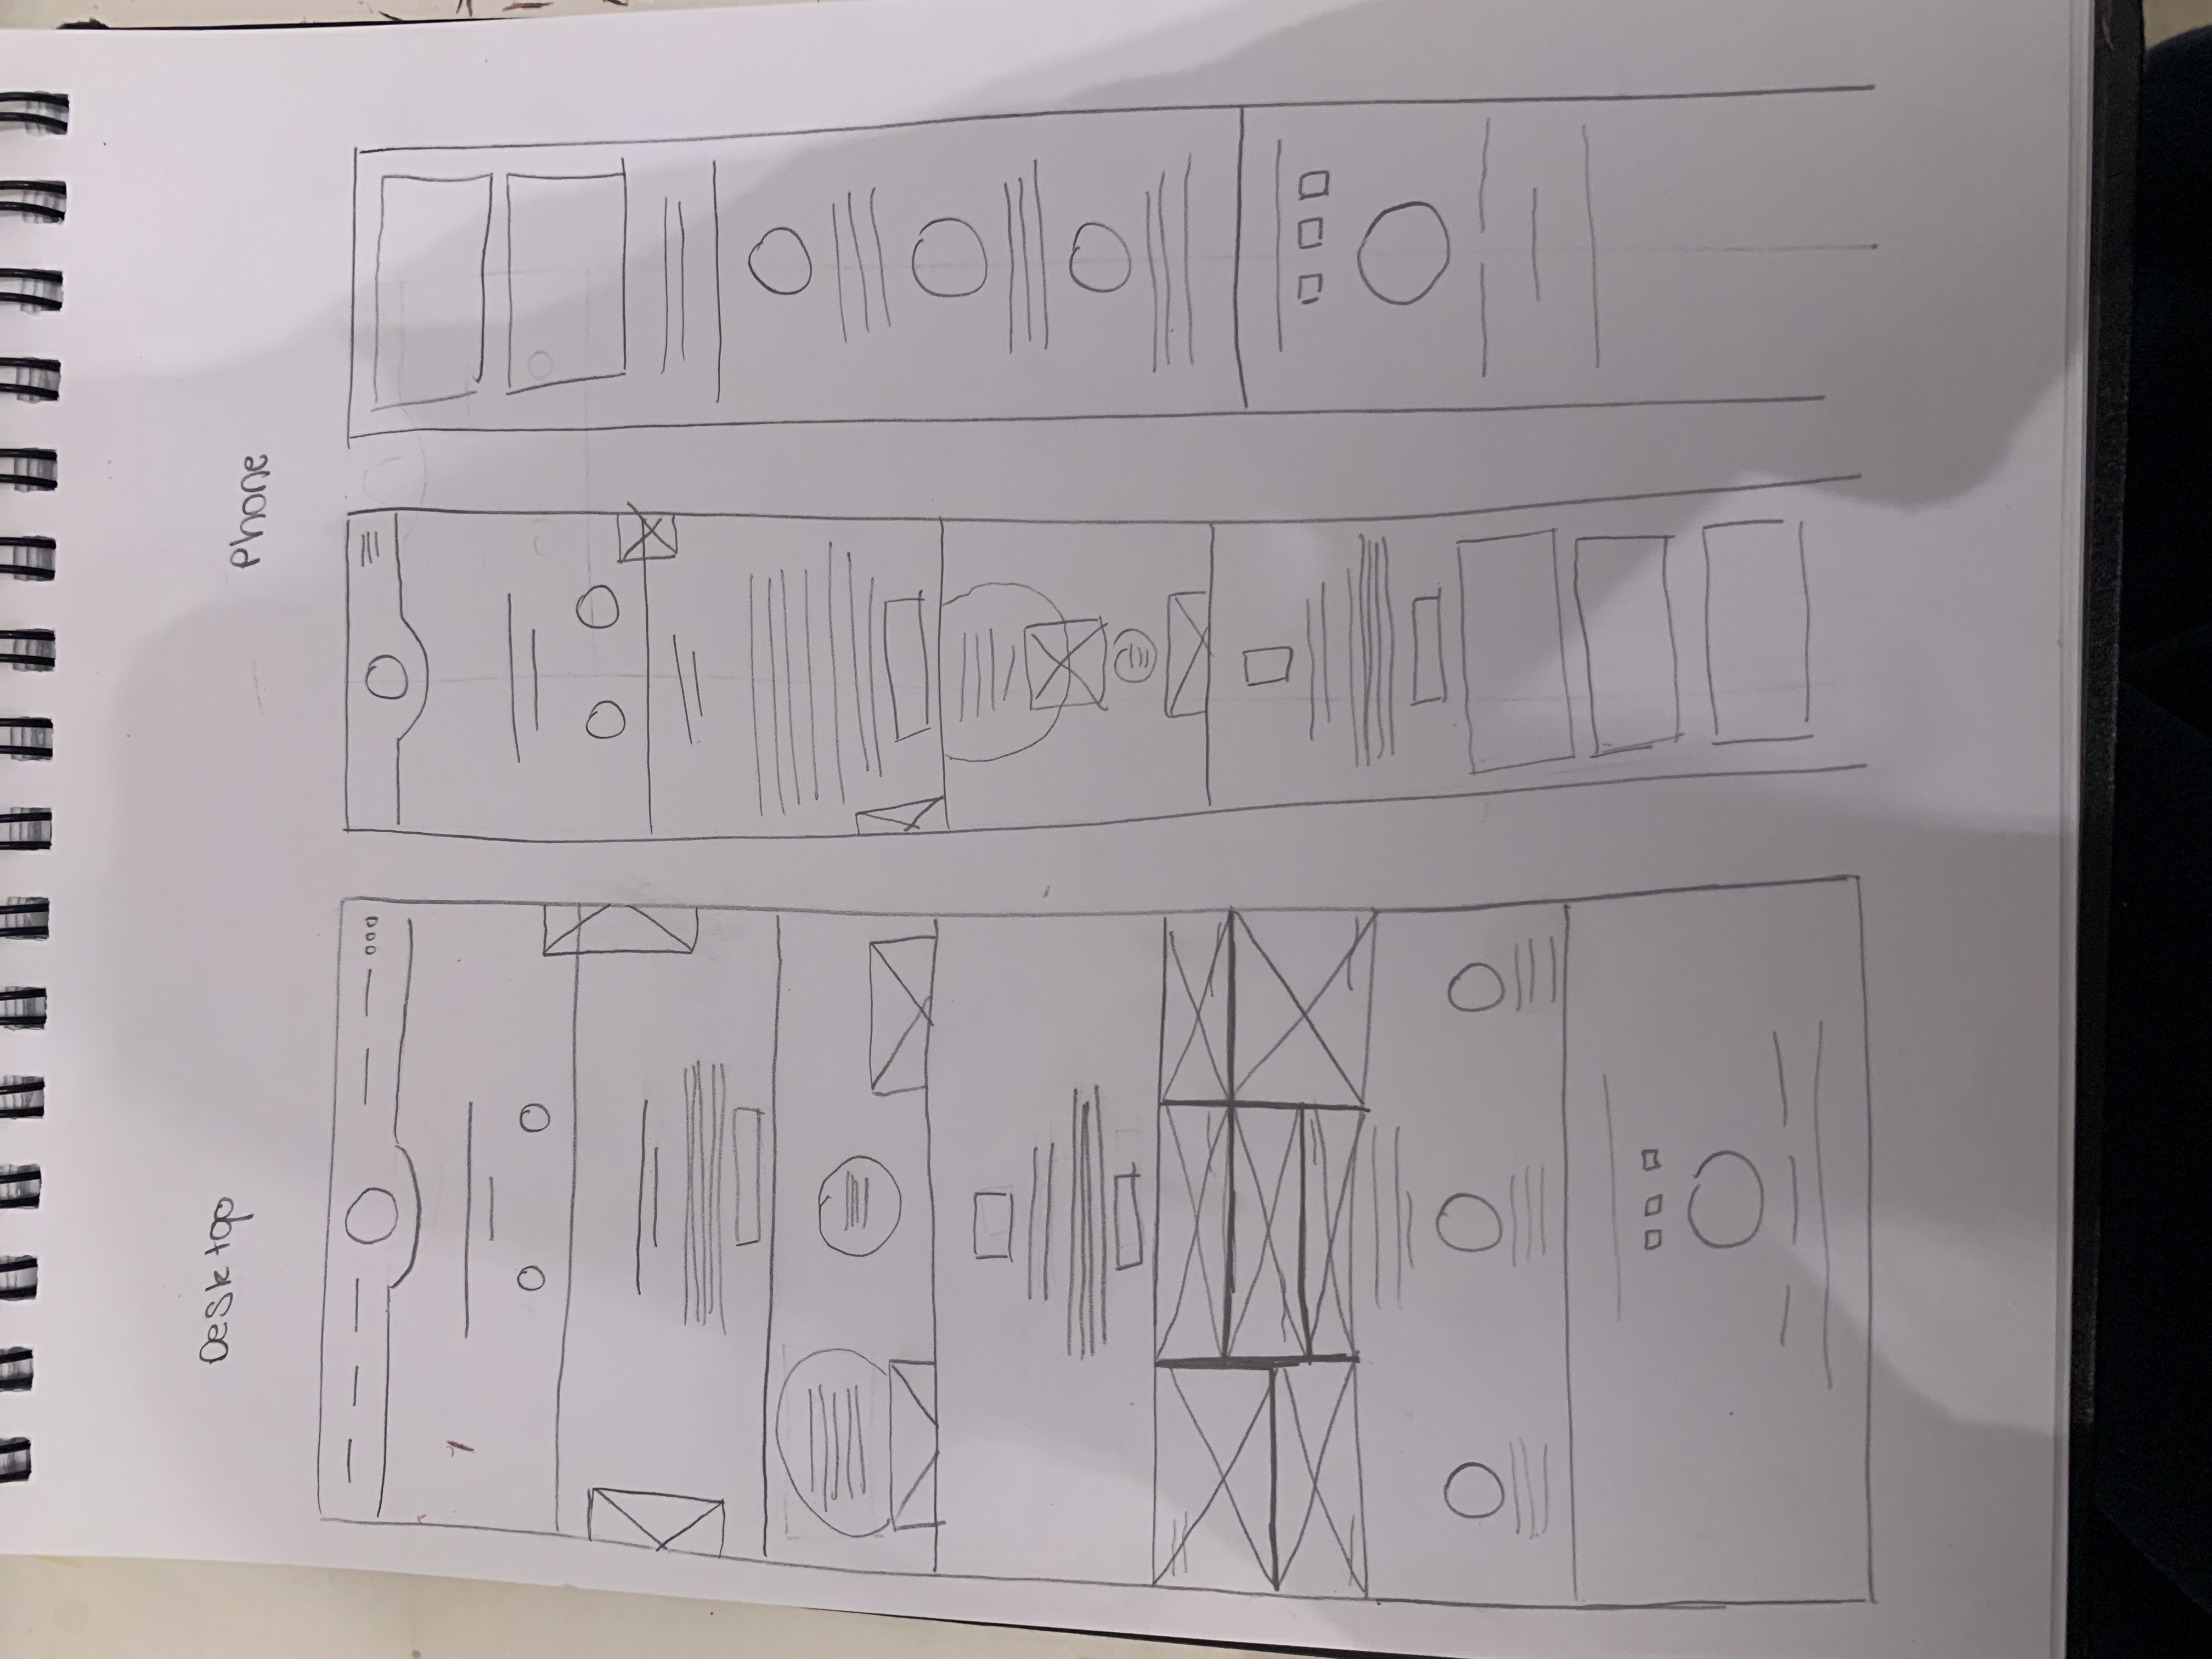 Desktop
Phone